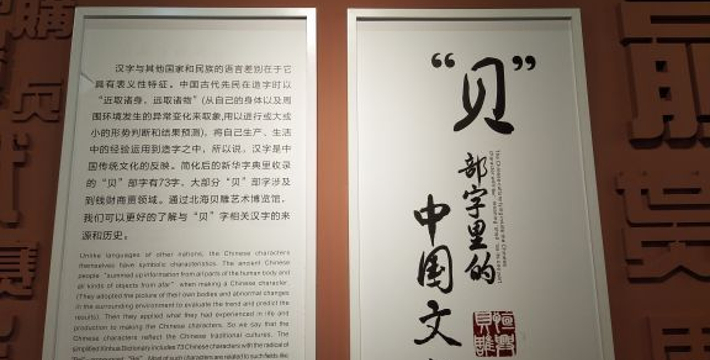 汉字与其他国家和民族的语言差别在于它
具有表义性特征。中国古代先民在造字时以
“近取诸身，远取诸物”(从自己的身体以及周
围环境发生的异常变化来取象,用以进行或大或
小的形势判断和结果预测)，将自己生产、生活
中的经验运用到造字之中，所以说，汉字是中
国传统文化的反映。简化后的新华字典里收录
的“贝”部字有73字。大部分“贝”部字涉及
到钱财商贾领域。通过北海贝雕艺术博览馆，
我们可以更好的了解与“贝”字相关汉字的来
源和历史。
Unlike languages of other nations, the Chinese characters
themselves have symbolic characteristics. The ancient Chinese
people “summed up information from all parts of the human body and
all kinds of objects from afar” when making a Chinese character.
(They adopted the picture of their own bodies and abnormal changes
in the surrounding environment to evaluate the trend and predict the
results). Then they applied what they had experienced in life and
production to making the Chinese characters. So we say that the
Chinese characters reflect the Chinese traditional cultures. The
simplified Xinhua Dictionary includes 73 Chinese characters with the radical of
“贝”
部字里的
中国文
購
贝
赛